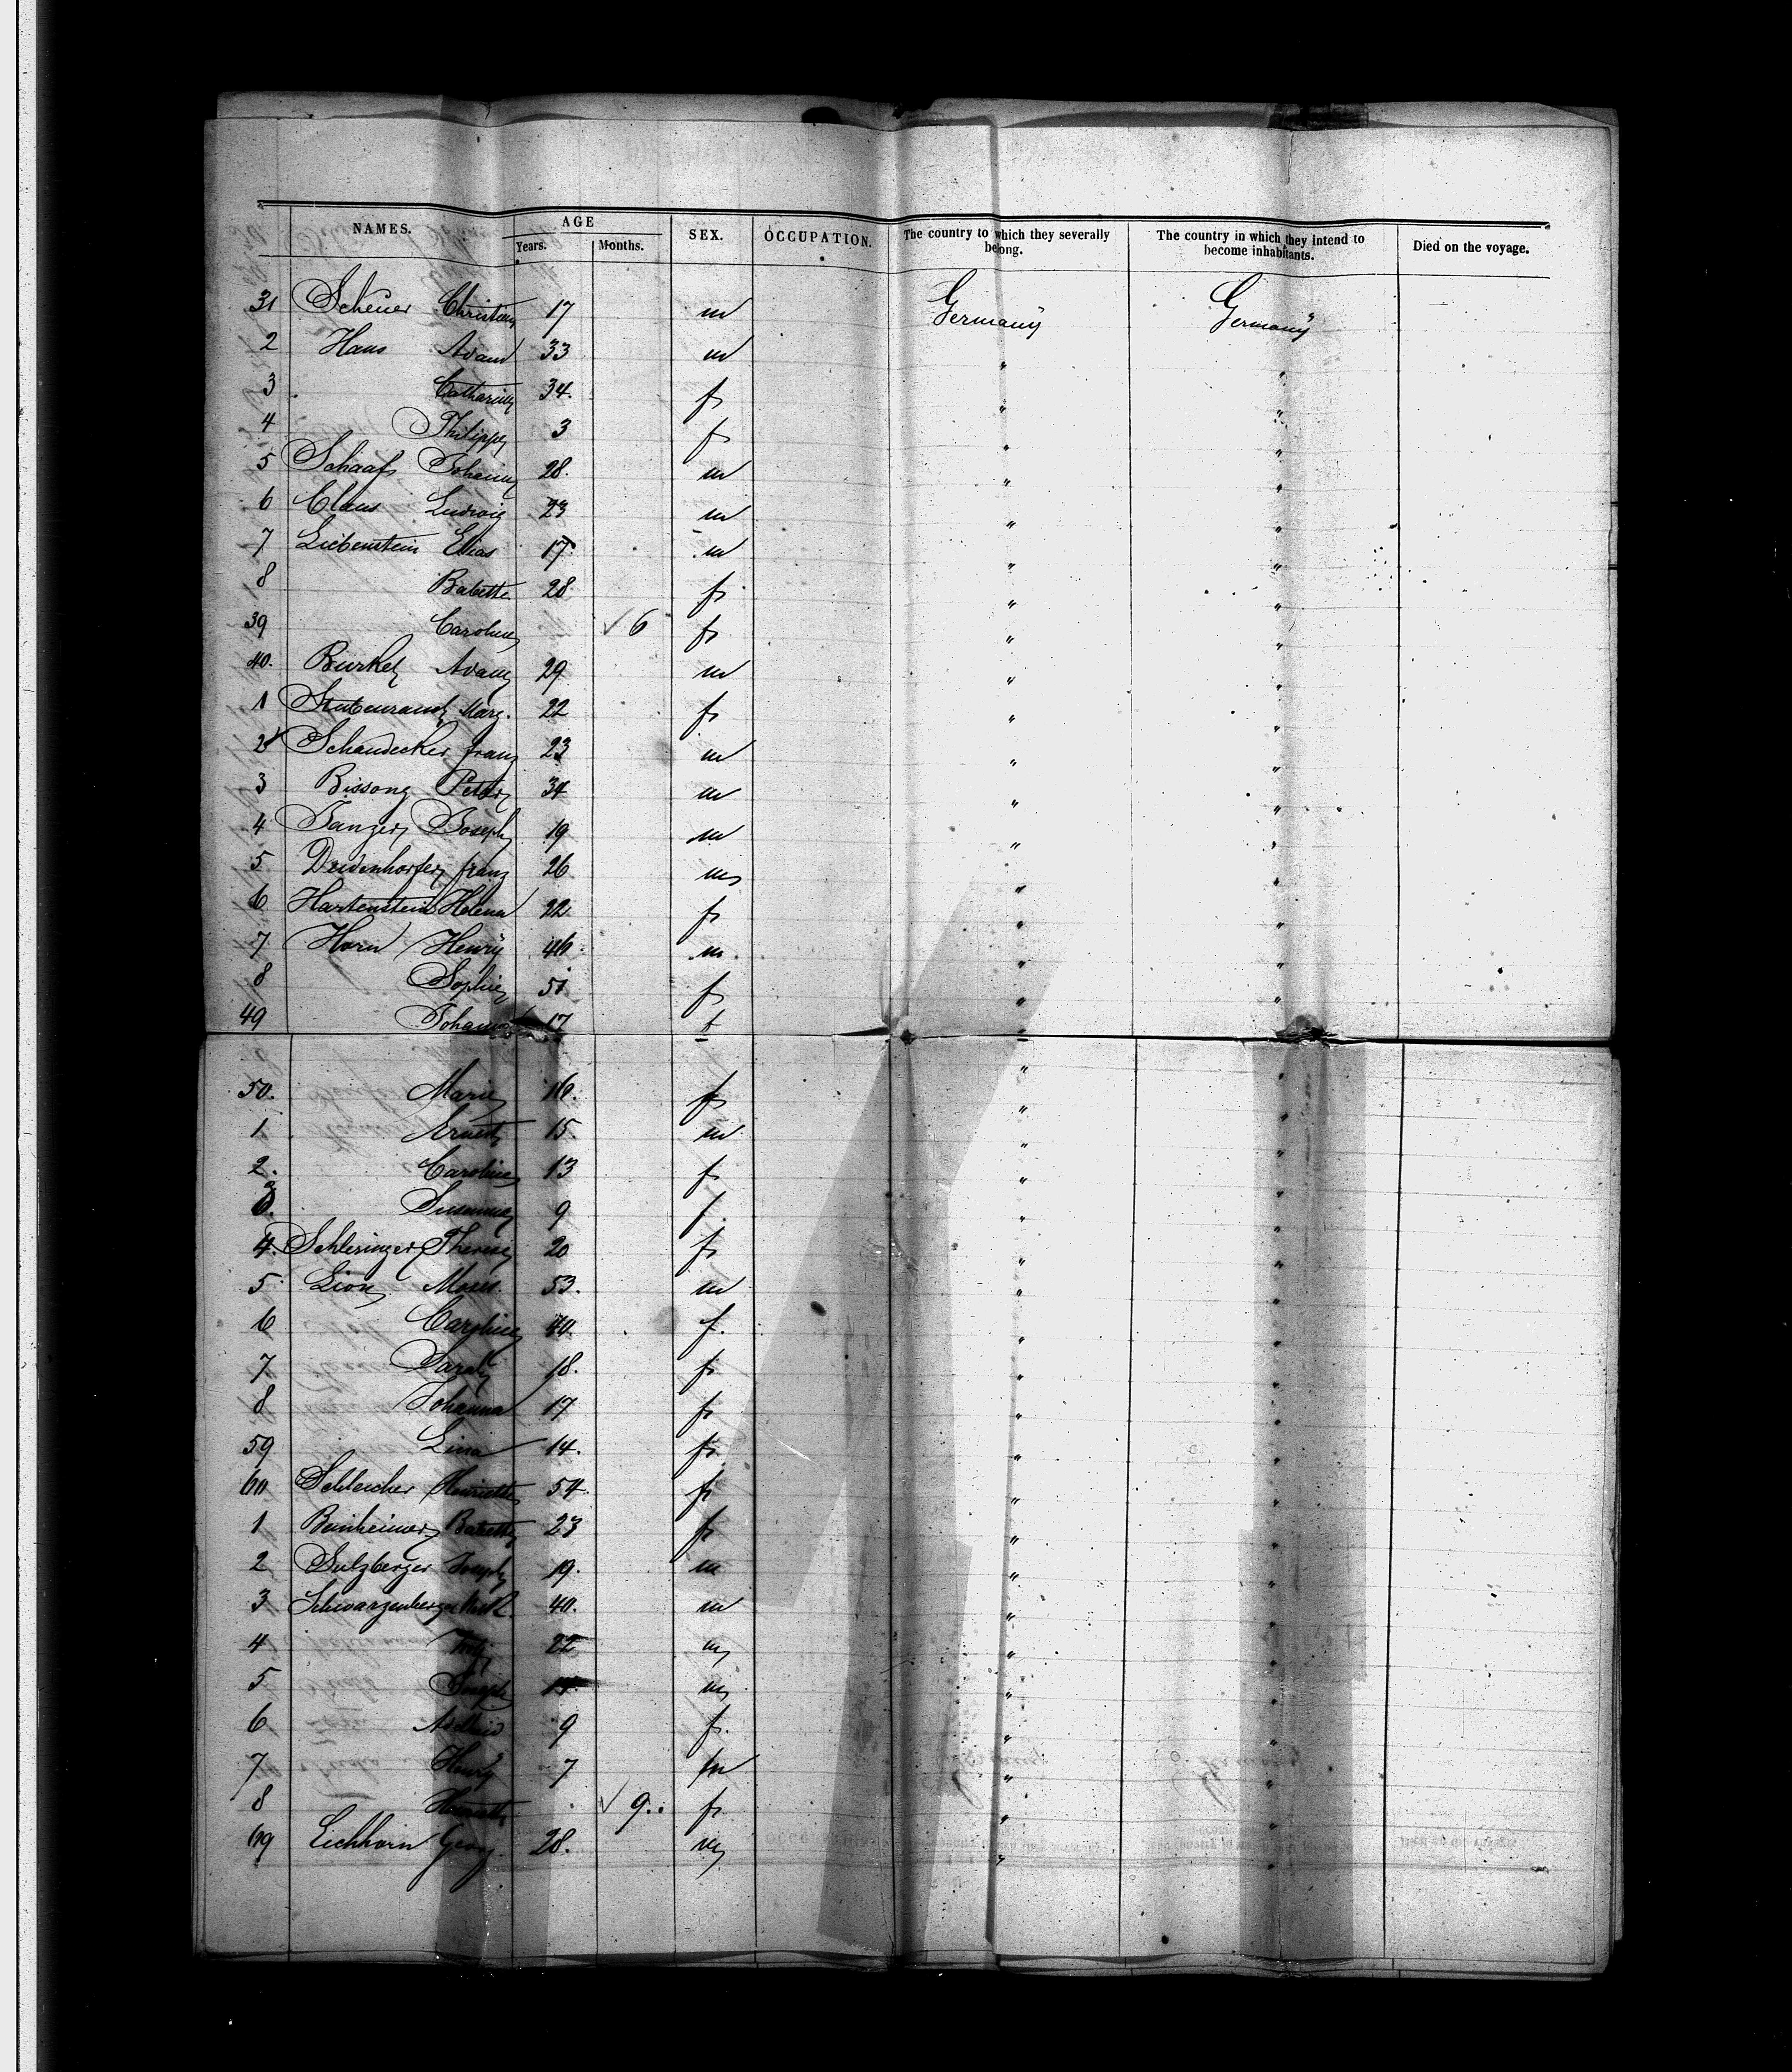 NAMES. AGE SEX. OCCUPATION. The country to which they severally belong. The country in which they intend to become inhabitants. Died on the voyage.
Years. Months.
31 Scheuer Christian 17 m Germany Germany
2 Haus Adam 33 m " "
3 Catharina 34. f " "
4 Philippa 3 f " "
5 Schaaf Johann 28. m " "
6 Claus Ludwig 23 m " "
7 Liebenstein Elias 17 m " "
8 Babette 28 f " "
39 Caroline ✓ 6 f " "
40. Burkel Adam 29 m " "
1 Stubenrauch Marg. 22 f " "
2 Schandecker franz 23 m " "
3 Bissong Peter 34 m " "
4 Joseph 19 m " "
5 franz 26 m " "
6 Hartenstein Helena 22 f " "
7 Horn Henry 46 m. " "
8 Sophie 51 f " "
49 17 f " "
50. Marie 16. f " "
1. Ernest 15. m " "
2. Caroline 13 f " "
3. Susanna 9 f. " "
4. Schlesinger Therese 20 f " "
5. Lion Moses 53. m " "
6 Caroline 40. f. " "
7 Sarah 18. f " "
8 Johanna 17 f " "
59 Lina 14. f " "
60 Schleicher Henriette 54 f " "
1 Babette 23 f " "
2 Sulzberger Joseph 19. m " "
3 Schwarzenberger 40. m " "
4 22 m " "
5 Joseph m " "
6 Adelheid 9 f. " "
7 Henry 7 m " "
8 Henriette ✓ 9.. f " "
69 Eichhorn Georg 28. m " "